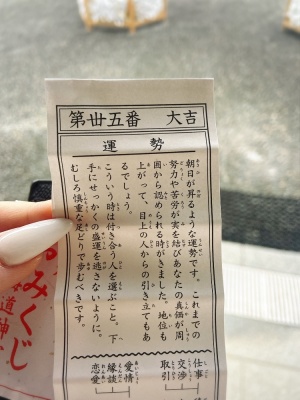 第廿五番　大吉
運　勢
朝日が昇るような運勢です。これまでの
努力や苦労が実を結びあなたの真価が周
囲から認められる時がきました。地位も
上がって、目上の人からの引き立てもあ
るでしょう。
こういう時は付き合う人を選ぶこと。下
手にせっかくの盛運を逃さないように。
むしろ慎重な足どりで歩むべきです。
仕事
交渉
取引
愛情
縁談
恋愛
みくじ
道神